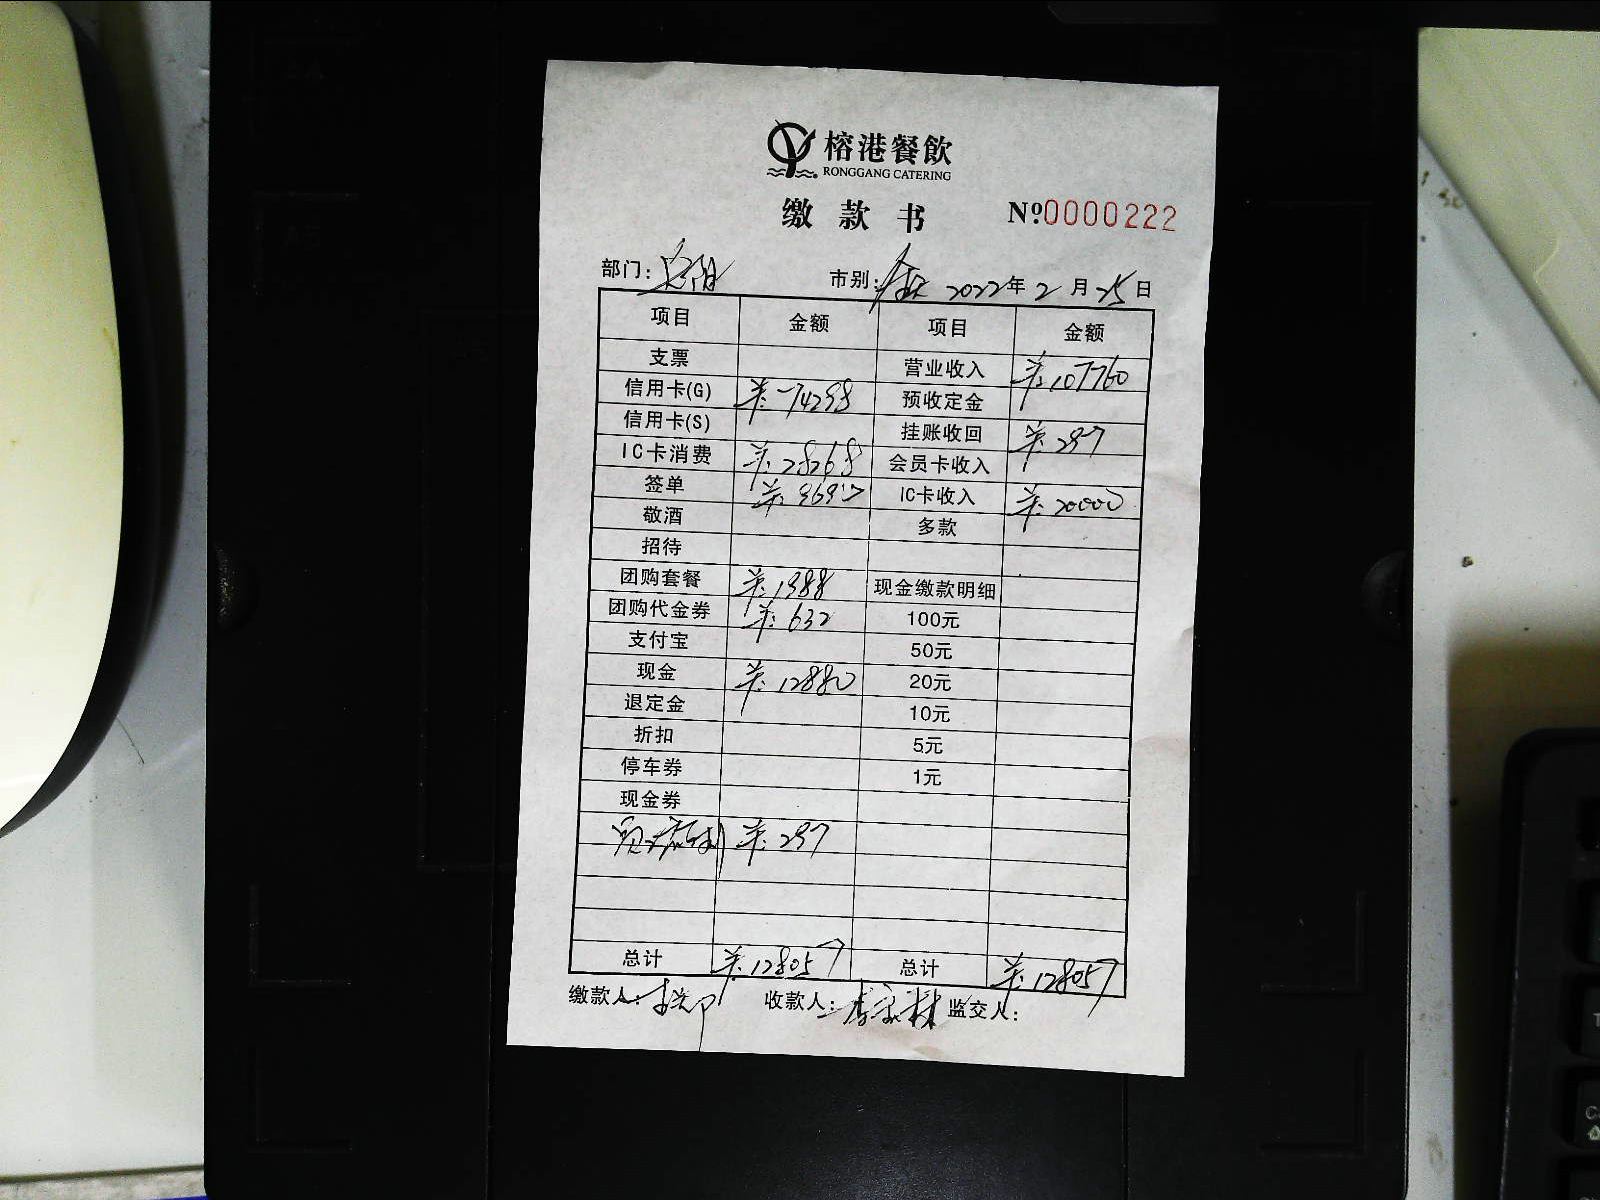 榕港餐飲
RONGGANG CATERING
缴款书 №0000222
部门: 市别: 2022年2月25日
项目 金额 项目 金额
支票 营业收入 ¥:107760
信用卡(G) ¥:74298 预收定金
信用卡(S) 挂账收回 ¥:297
IC卡消费 ¥:28268 会员卡收入
签单 IC卡收入 ¥:20000
敬酒 多款
招待
团购套餐 ¥:1988 现金缴款明细
团购代金券 ¥:632 100元
支付宝 50元
现金 ¥:12880 20元
退定金 10元
折扣 5元
停车券 1元
现金券
¥:297
总计 ¥:128057 总计 ¥:128057
缴款人: 收款人: 监交人: